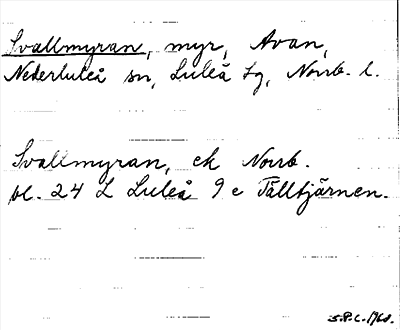 Svallmyran, myr, Avan,
Nederluleå sn, Luleå tg, Norrb. l.
Svallmyran, ek Norrb.
bl. 24 L Luleå 9 c Tälltjärnen.
S.P.C. 1968.